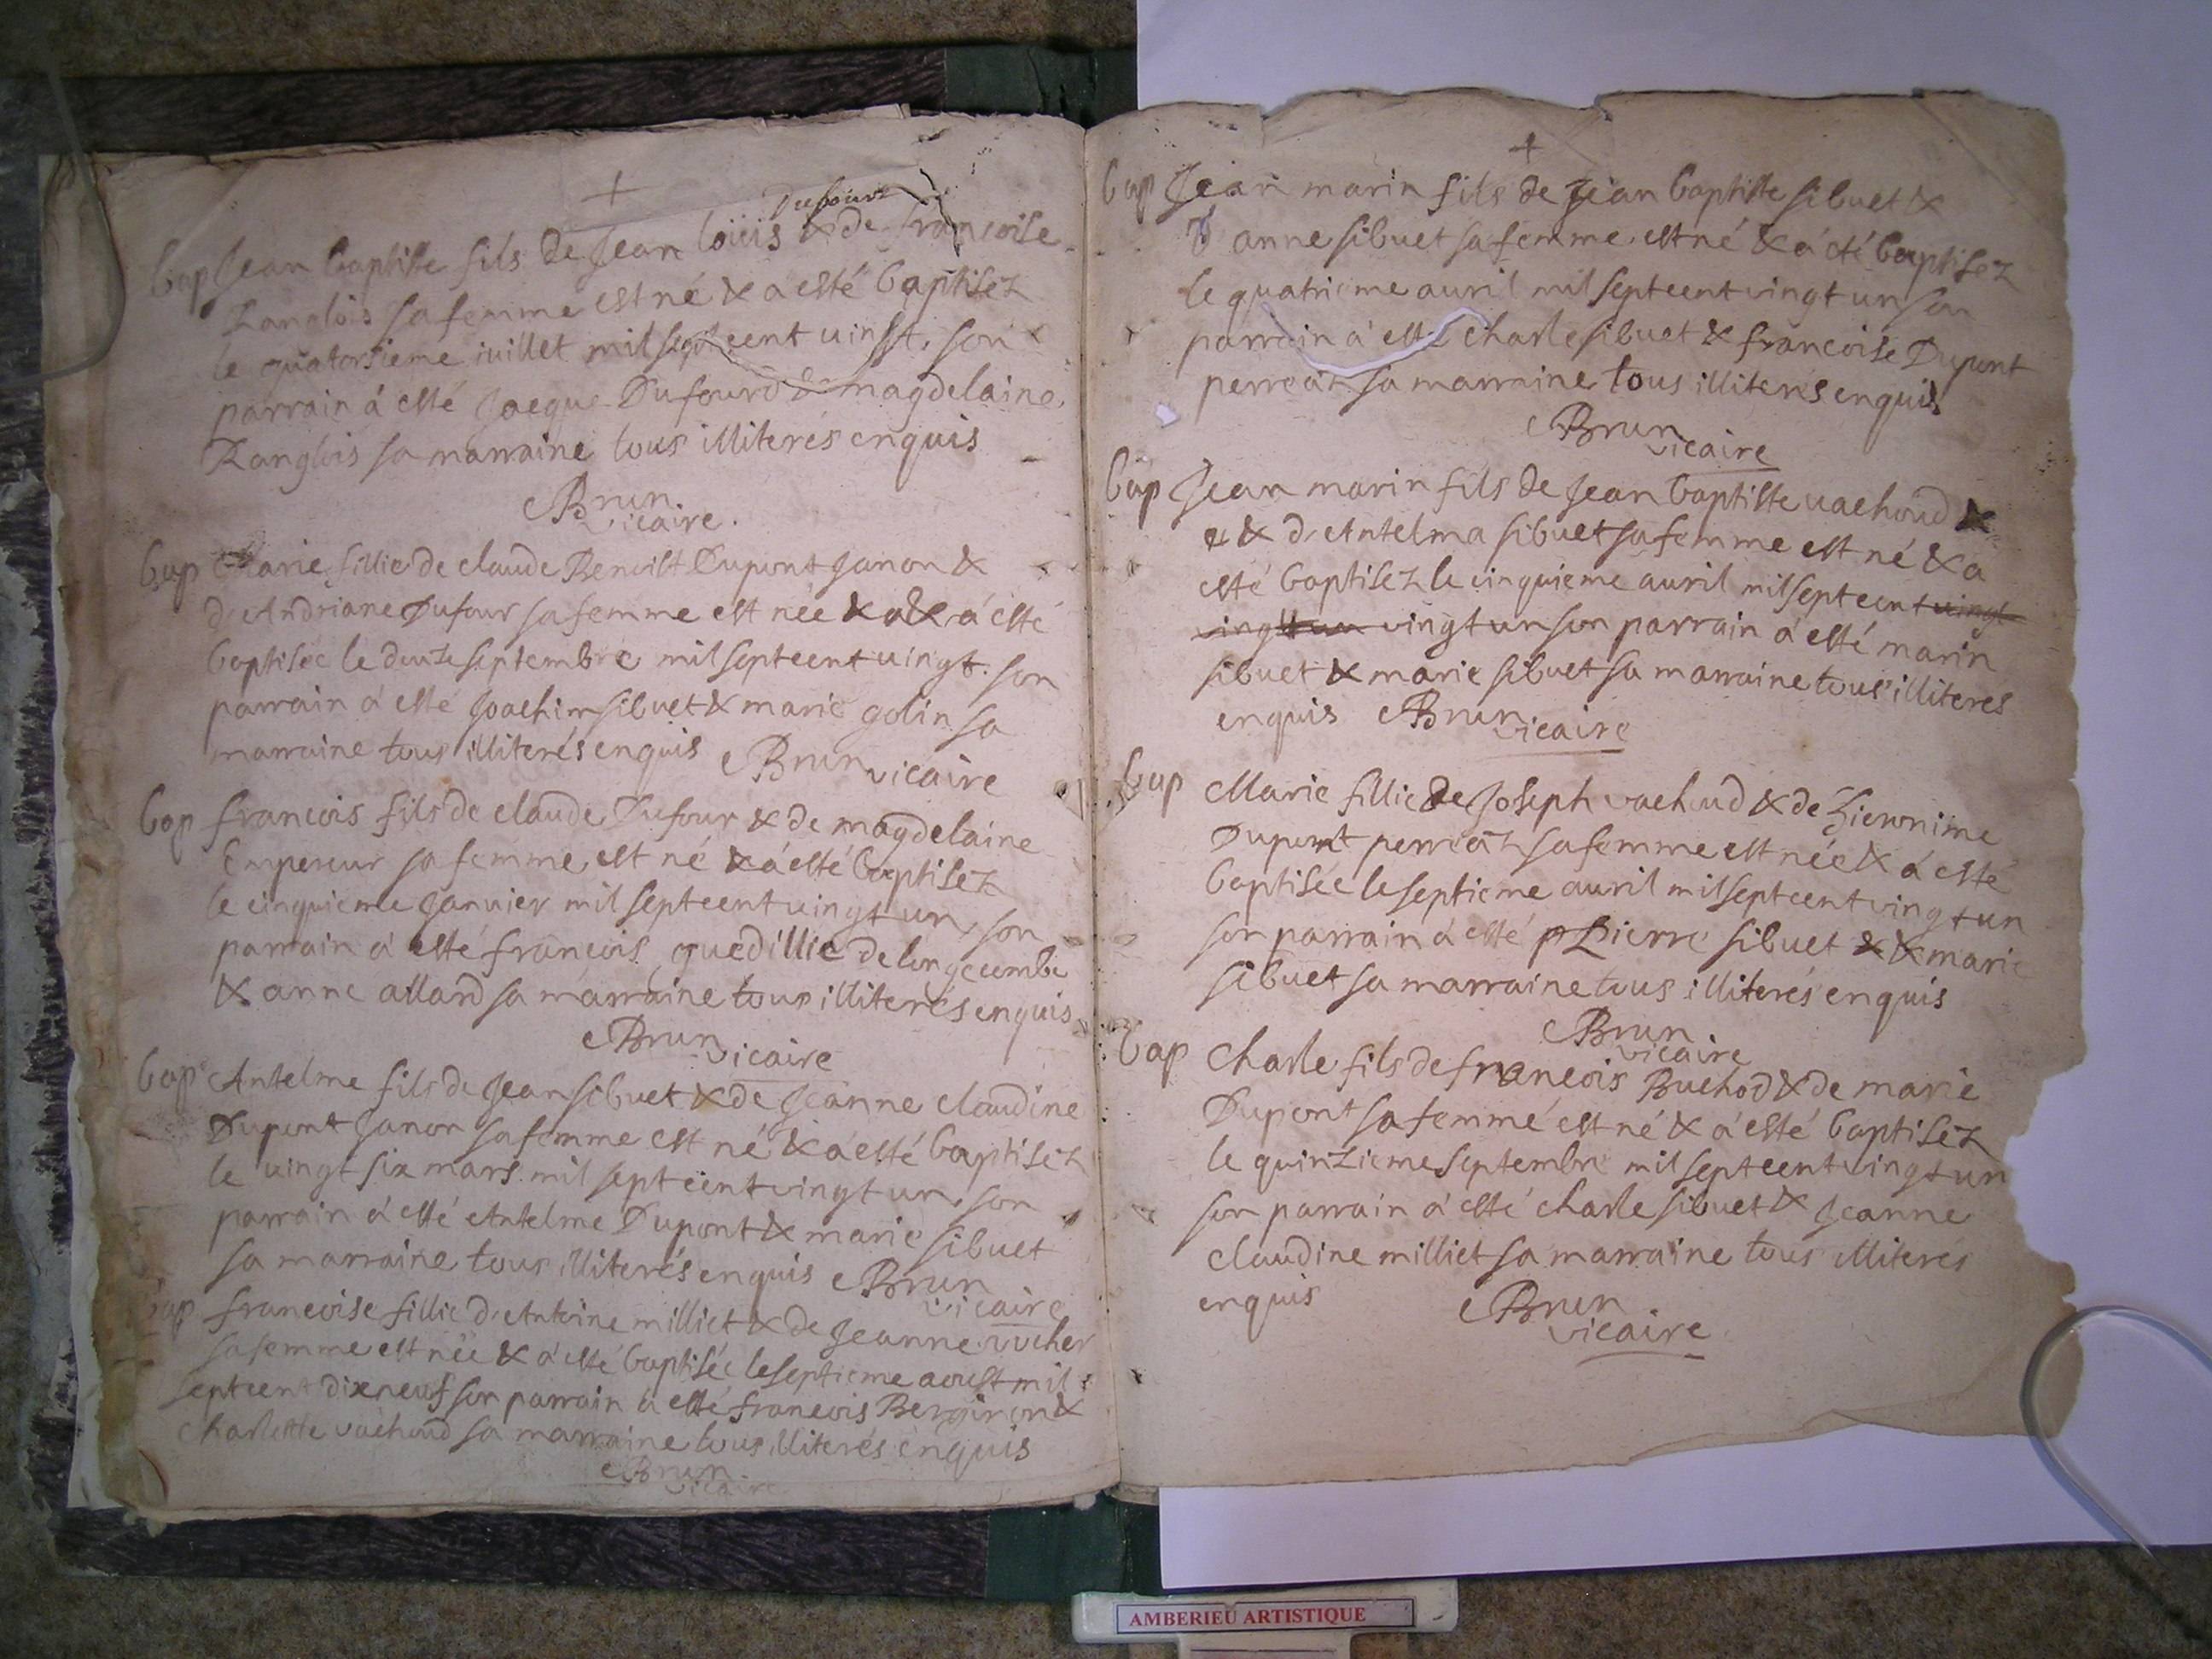 +
Dufour
bap Jean baptiste fils de Jean loüis & de francoise
Langlois sa femme est né & a esté baptisez
le quatorsieme iuillet mil sept cent uinst. son
parrain á esté Jacque Dufourd & magdelaine
Langlois sa marraine tous illiterés enquis
Brun
vicaire.
bap Marie fillie de claude Benoist Dupont Janon &
d'Andriane Dufour sa femme est née & a & á esté
baptisée le douze septembre mil sept cent uingt. son
parrain á esté Joachim sibuet & marie golin sa
marraine tous illiterés enquis Brun vicaire
bap francois fils de claude Dufour & de magdelaine
Empereur sa femme est né & á esté baptisez
le cinquieme Janvier mil sept cent uingt un, son
parrain á esté francois guedillie de longecombe
& anne allard sa marraine tous illiterés enquis
Brun vicaire
bap Antelme fils de Jean sibuet & de Jeanne claudine
Dupont Janon sa femme est né & á esté baptisez
le uingt six mars mil sept cent vingt un, son
parrain á esté Antelme Dupont & marie sibuet
sa marraine tous illiterés enquis Brun
vicaire
bap francoise fillie d'Antoine milliet & de Jeanne
sa femme est née & á esté baptisée le septieme aoust mil
sept cent dixneuf son parrain á esté francois Bergiron &
charlotte vachoud sa marraine tous illiterés enquis
Brun
vicaire
+
bap Jean marin fils de Jean baptiste sibuet &
d anne sibuet sa femme est né & á été baptisez
le quatrieme auril mil sept cent vingt un son
parrain á esté charle sibuet & francoise Dupont
perreaz sa marraine tous illiterés enquis
Brun
vicaire
bap Jean marin fils de Jean baptiste vachoud &
& d'Antelma sibuet sa femme est né & a
esté baptisez le cinquieme auril mil sept cent vingt
vingt un vingt un son parrain á esté marin
sibuet & marie sibuet sa marraine tous illiteres
enquis Brun vicaire
bap Marie fillie de Joseph vachoud & de hieronime
Dupont perreaz sa femme est née & á esté
baptisée le septieme auril mil sept cent vingt un
son parrain á esté p Pierre sibuet & & marie
sibuet sa marraine tous illiterés enquis
Brun
vicaire
bap Charle fils de francois Buchod & de marie
Dupont sa femme est né & á esté baptisez
le quinzieme septembre mil sept cent vingt un
son parrain á esté charle sibuet & Jeanne
claudine milliet sa marraine tous illiterés
enquis Brun
vicaire
AMBERIEU ARTISTIQUE